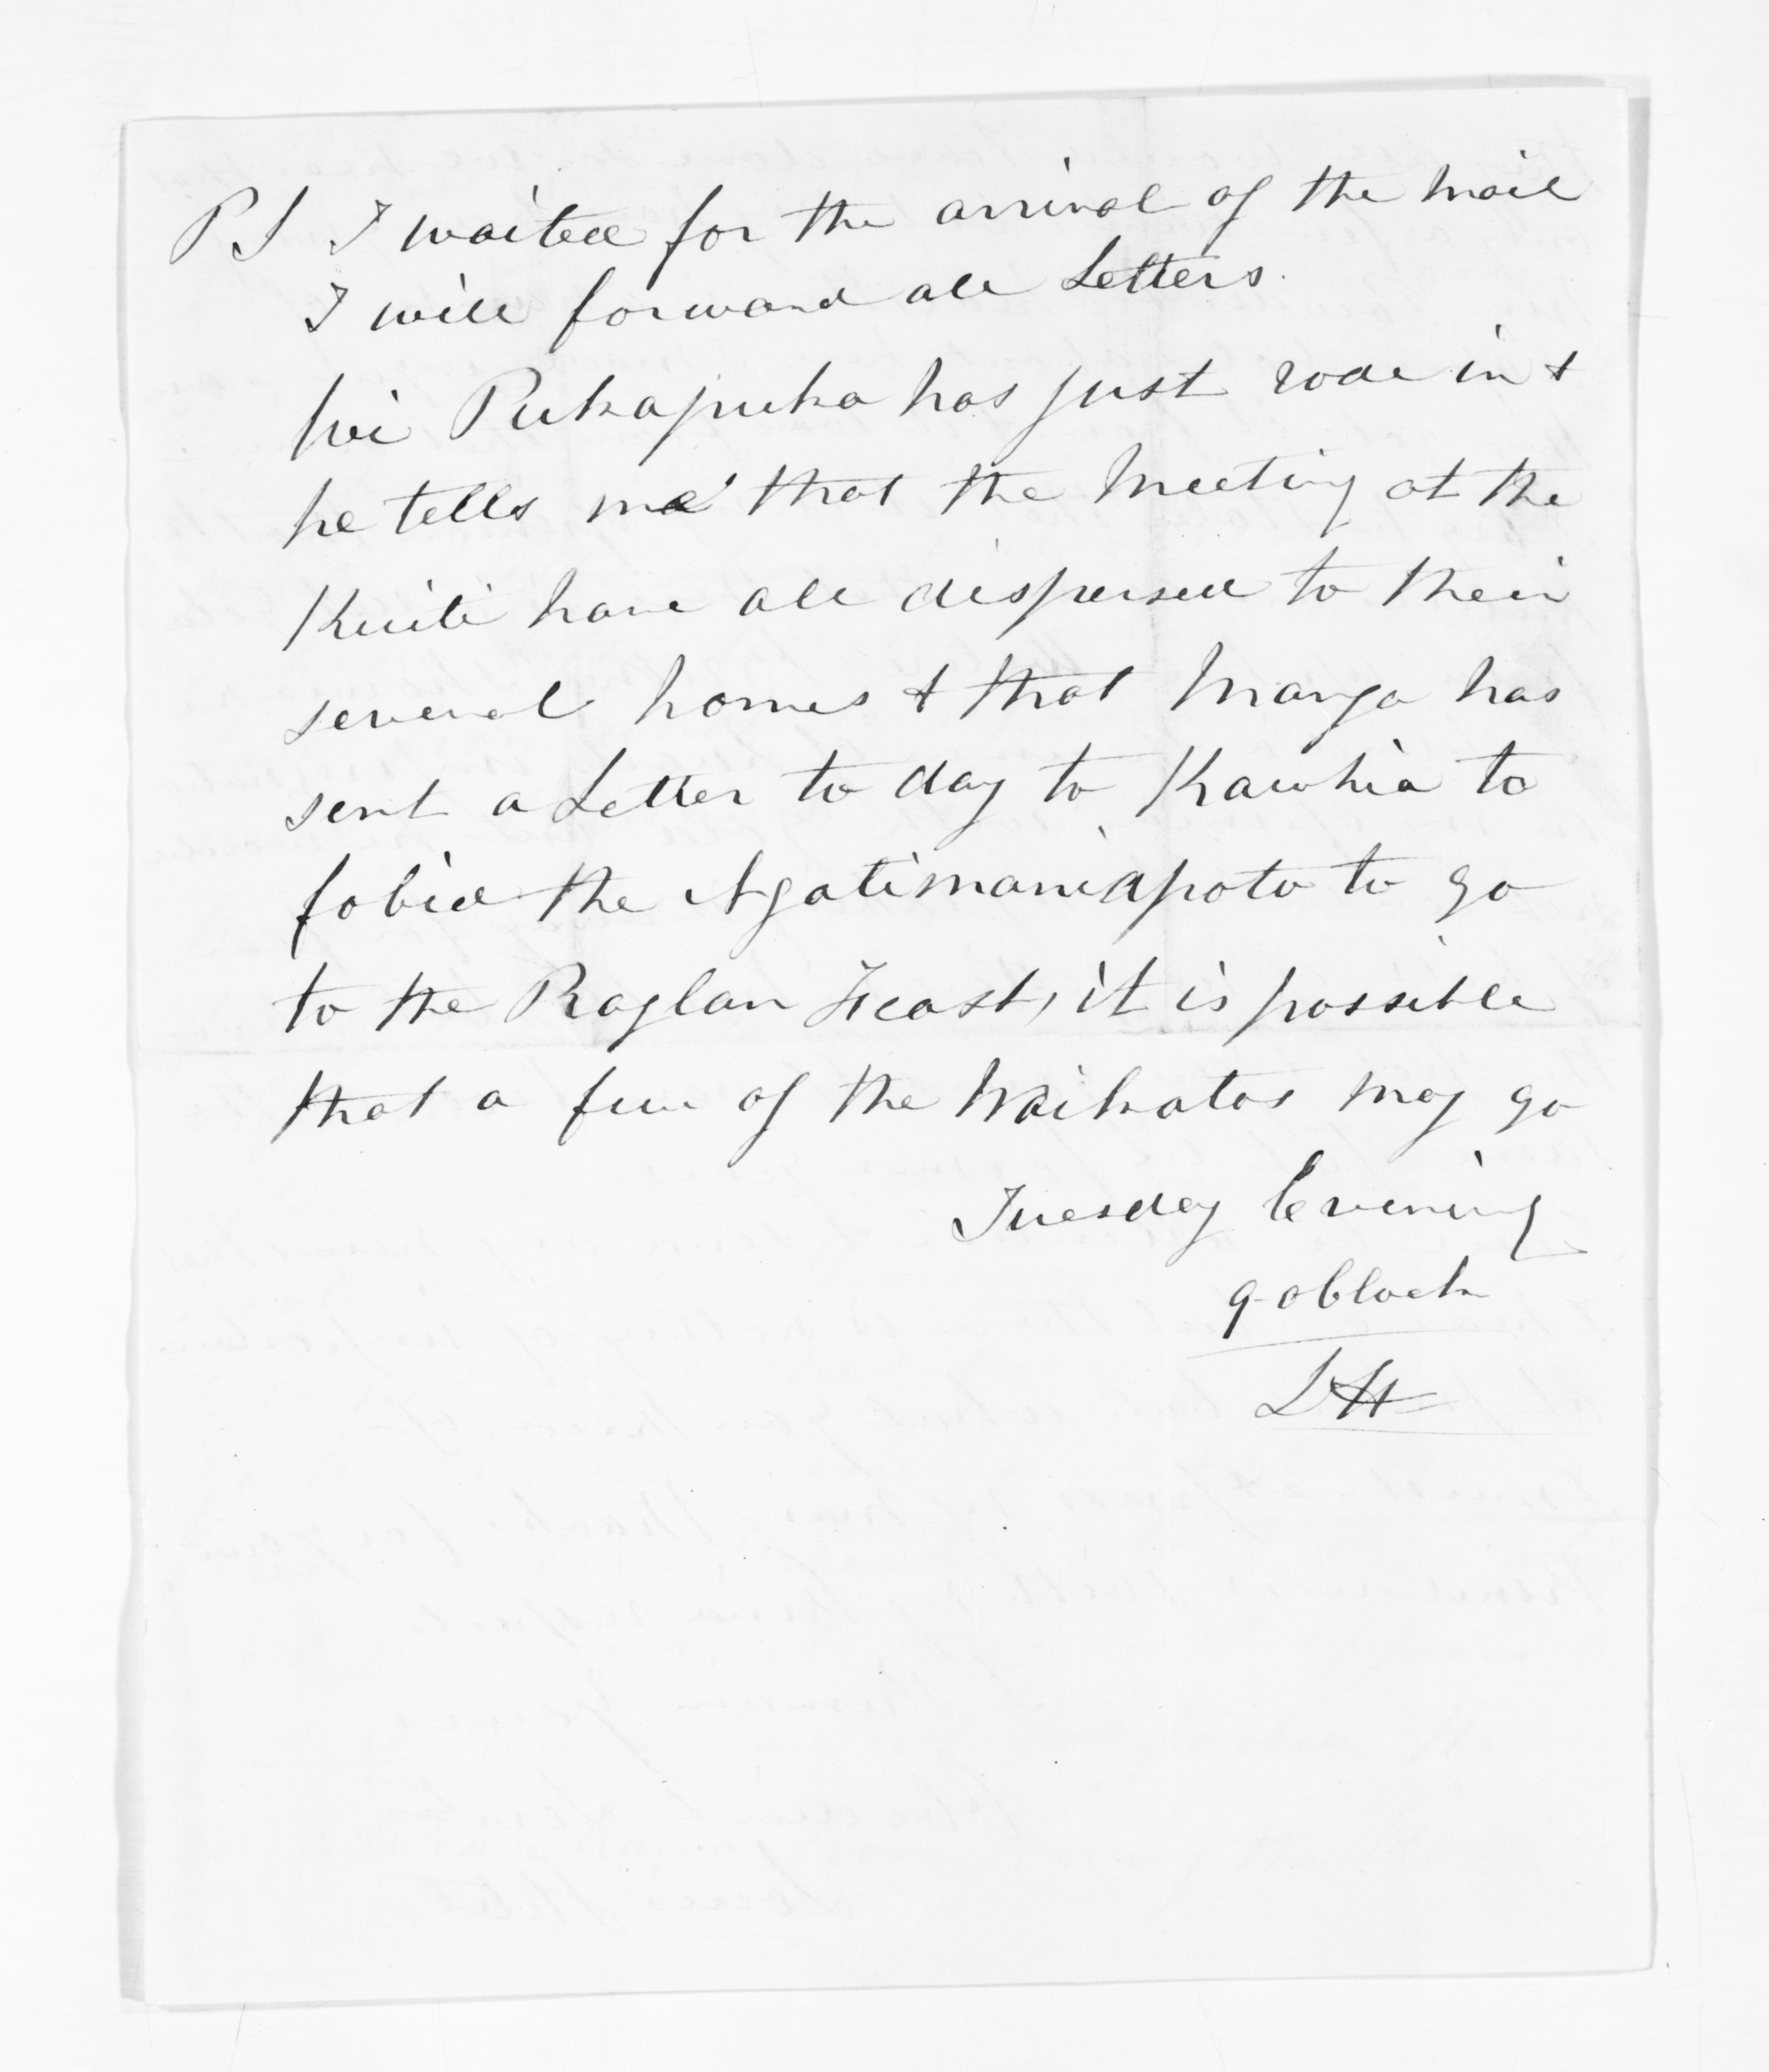 PS I waited for the arrival of the mail
I will forward all Letters.
Wi Pukapuka has just rode in &
he tells me that the Meeting at the
Kuiti have all dispersed to their
several homes & that Manga has
sent a Letter to day to Kawhia to
fobid the Ngatimaniapoto to go
to the Raglan Feast, it is possible
that a few of the Waikatos may go
Tuesday Evening
9 oClock
LH